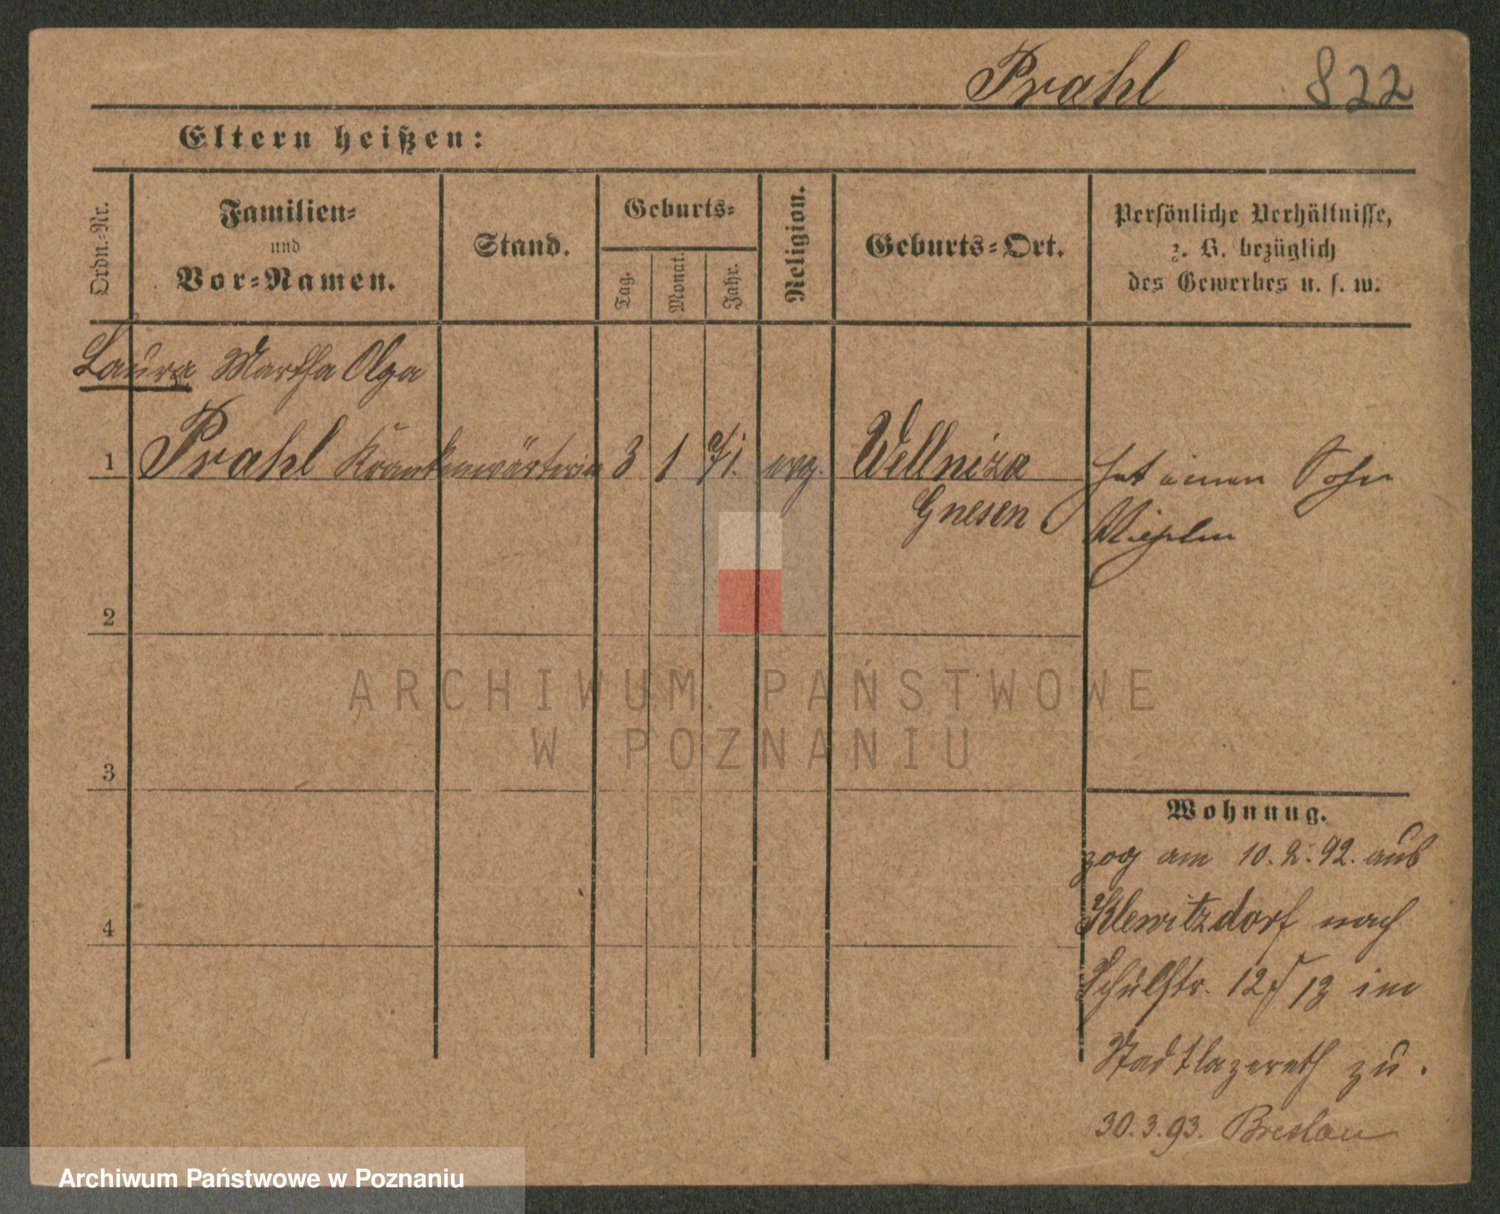 Prahl 822
Eltern heißen:
Ordn.-Nr.
Familien-
und
Vor-Namen.
Stand.
Geburts-
Tag.
Monat.
Jahr.
Religion.
Geburts-Ort.
Persönliche Verhältnisse,
z. B. bezüglich
des Gewerbes u. s. w.
Laura Martha Olga
1 Prahl Krankenwärterin 3 1 71. evg. Wellniza
Gnesen
hat einen Sohn
2
3
4
Wohnung.
zog am 10.2.92. aus
Klewitzdorf nach
Schulstr. 12/13 im
Stadtlazareth zu.
30.3.93. Breslau
ARCHIWUM PAŃSTWOWE
W POZNANIU
Archiwum Państwowe w Poznaniu